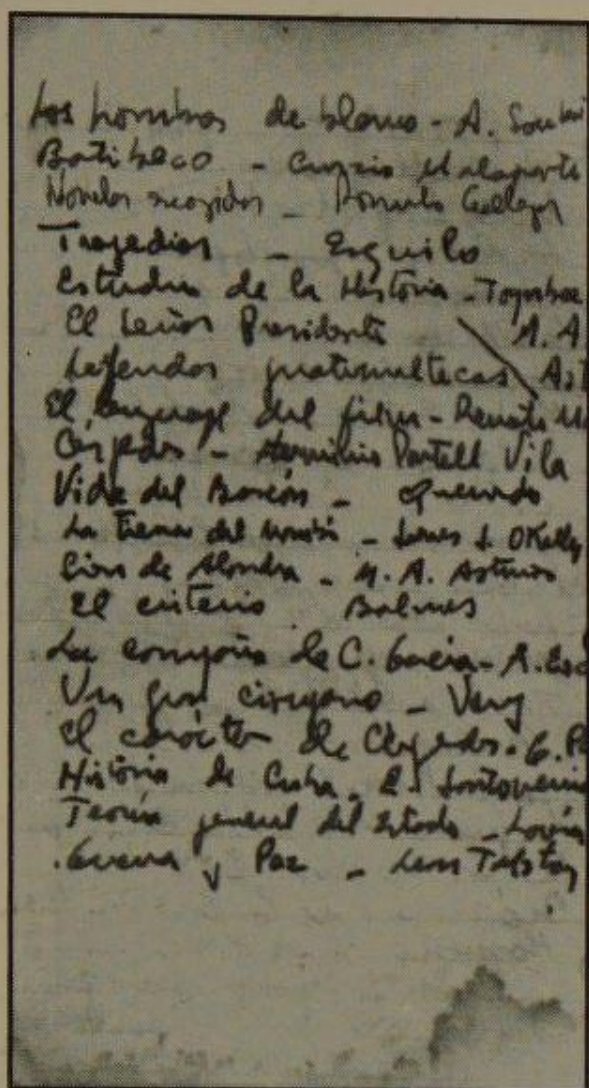 Los hombres de blanco - A. Soubi
Batibaco - Curzio Malaparte
Novelas escogidas - Rómulo Gallegos
Tragedias - Esquilo
Estudio de la Historia - Toynbee
El Señor Presidente A. A
Leyendas guatemaltecas Ast
El lenguaje del film - Renato M
Céspedes - Herminio Portell Vila
Vida del Buscón - Quevedo
La tierra del mambí - James J. O'Kelly
Clavi de Alondra - M. A. Asturias
El criterio Balmes
La campaña de C. García - A. Esc
Un gran cirujano - Very
El carácter de Céspedes - G. P
Historia de Cuba - E. Santovenia
Teoría general del Estado -
Guerra y Paz - León Tolstoy